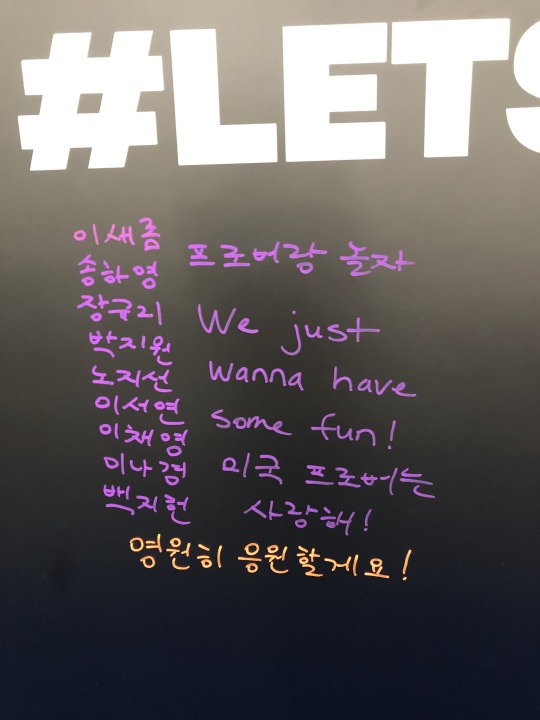 #LETS
이새롬
송하영
장규리
박지원
노지선
이서연
이채영
이나경
백지헌
프로머랑 놀자
We just
wanna have
some fun!
미국 프로머는
사랑해!
영원히 응원할게요!